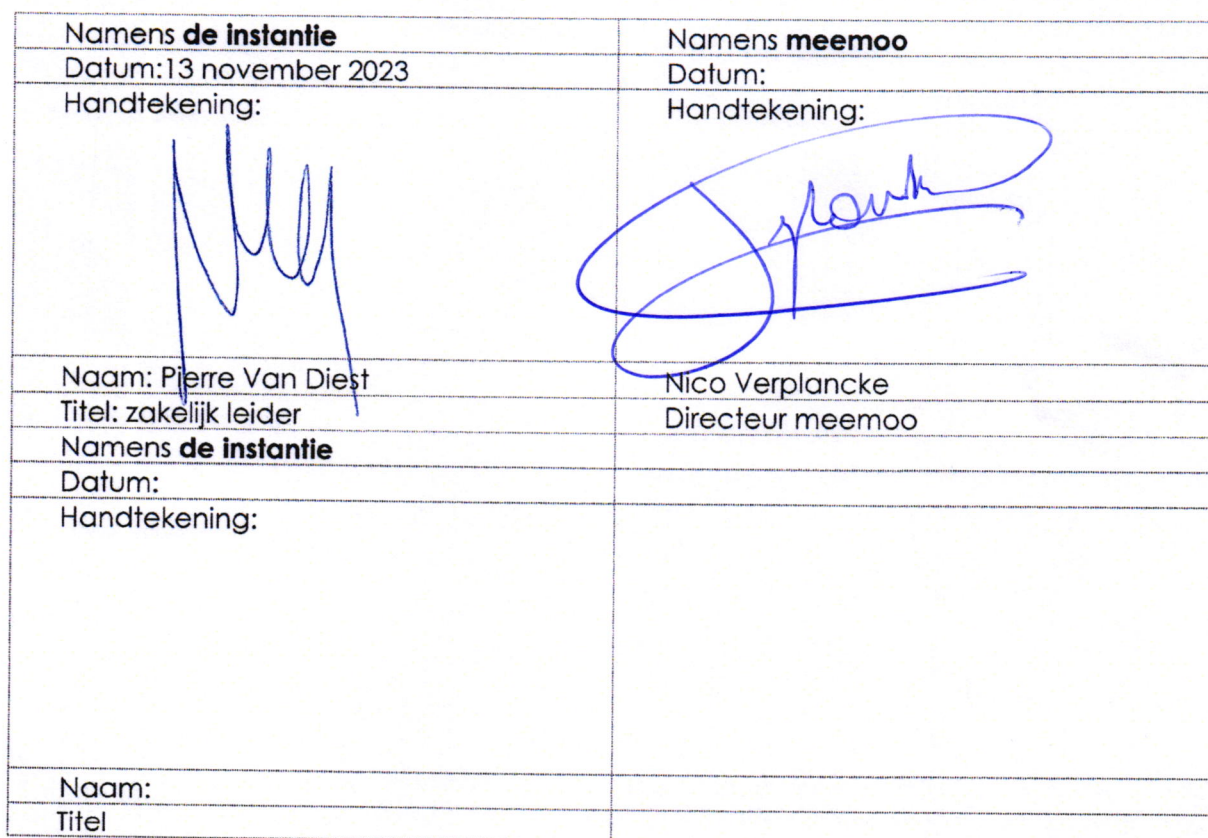 Namens de instantie
Namens meemoo
Datum:13 november 2023
Datum:
Handtekening:
Handtekening:
Naam: Pierre Van Diest
Nico Verplancke
Titel: zakelijk leider
Directeur meemoo
Namens de instantie
Datum:
Handtekening:
Naam:
Titel